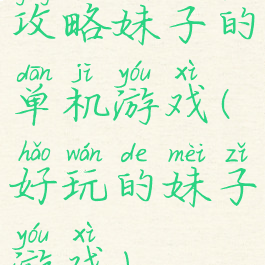 攻略妹子的
dān jī yóu xì
单机游戏(
hǎo wán de mèi zǐ
好玩的妹子
yóu xì
游戏)